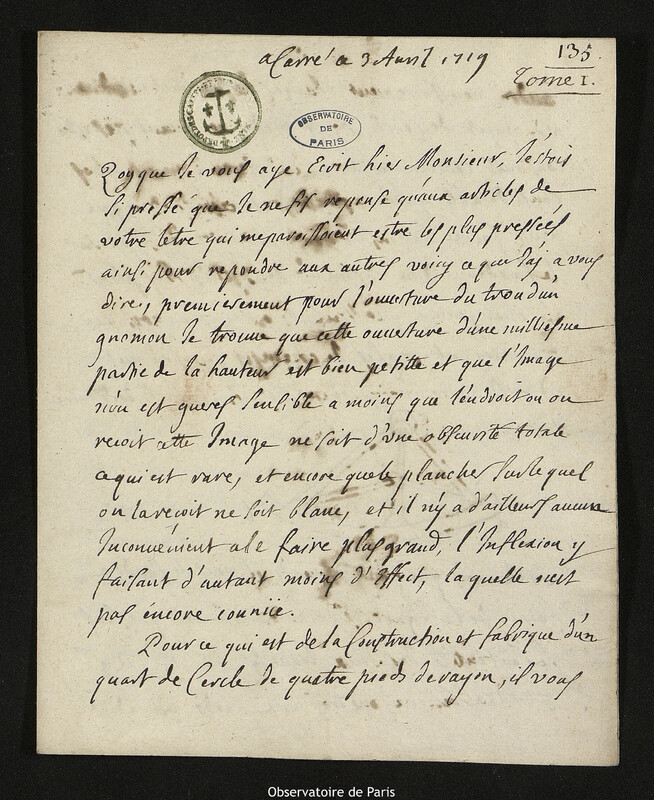 a Carré ce 3 Avril 1719
135
Tome I.
OBSERVATOIRE
DE
PARIS
Qoyque Je vous aye Ecrit hier Monsieur, J'estois
si pressé que Je ne fis reponse qu'aux articles de
votre letre qui meparoissoient estre les plus pressés
ainsi pour repondre aux autres voicy ce que J'ai a vous
dire, premierement pour l'ouverture du trou d'un
gnomon Je trouve que cette ouverture d'une milliesme
partie de la hauteur est bien petitte et que l'Image
n'en est gueres sensible a moins que l'endroit ou on
recoit cette Image ne soit d'une obscurité totale
ce qui est rare, et encore que le plancher sur le quel
on la recoit ne soit blanc, et il n'y a d'ailleurs aucun
Inconvenient a le faire plus grand, l'Inflexion y
faisant d'autant moins d'Effect, la quelle n'est
pas encore connüe.
Pour ce qui est de la Construction et fabrique d'un
quart de Cercle de quatre pieds de rayon, il vous
Observatoire de Paris